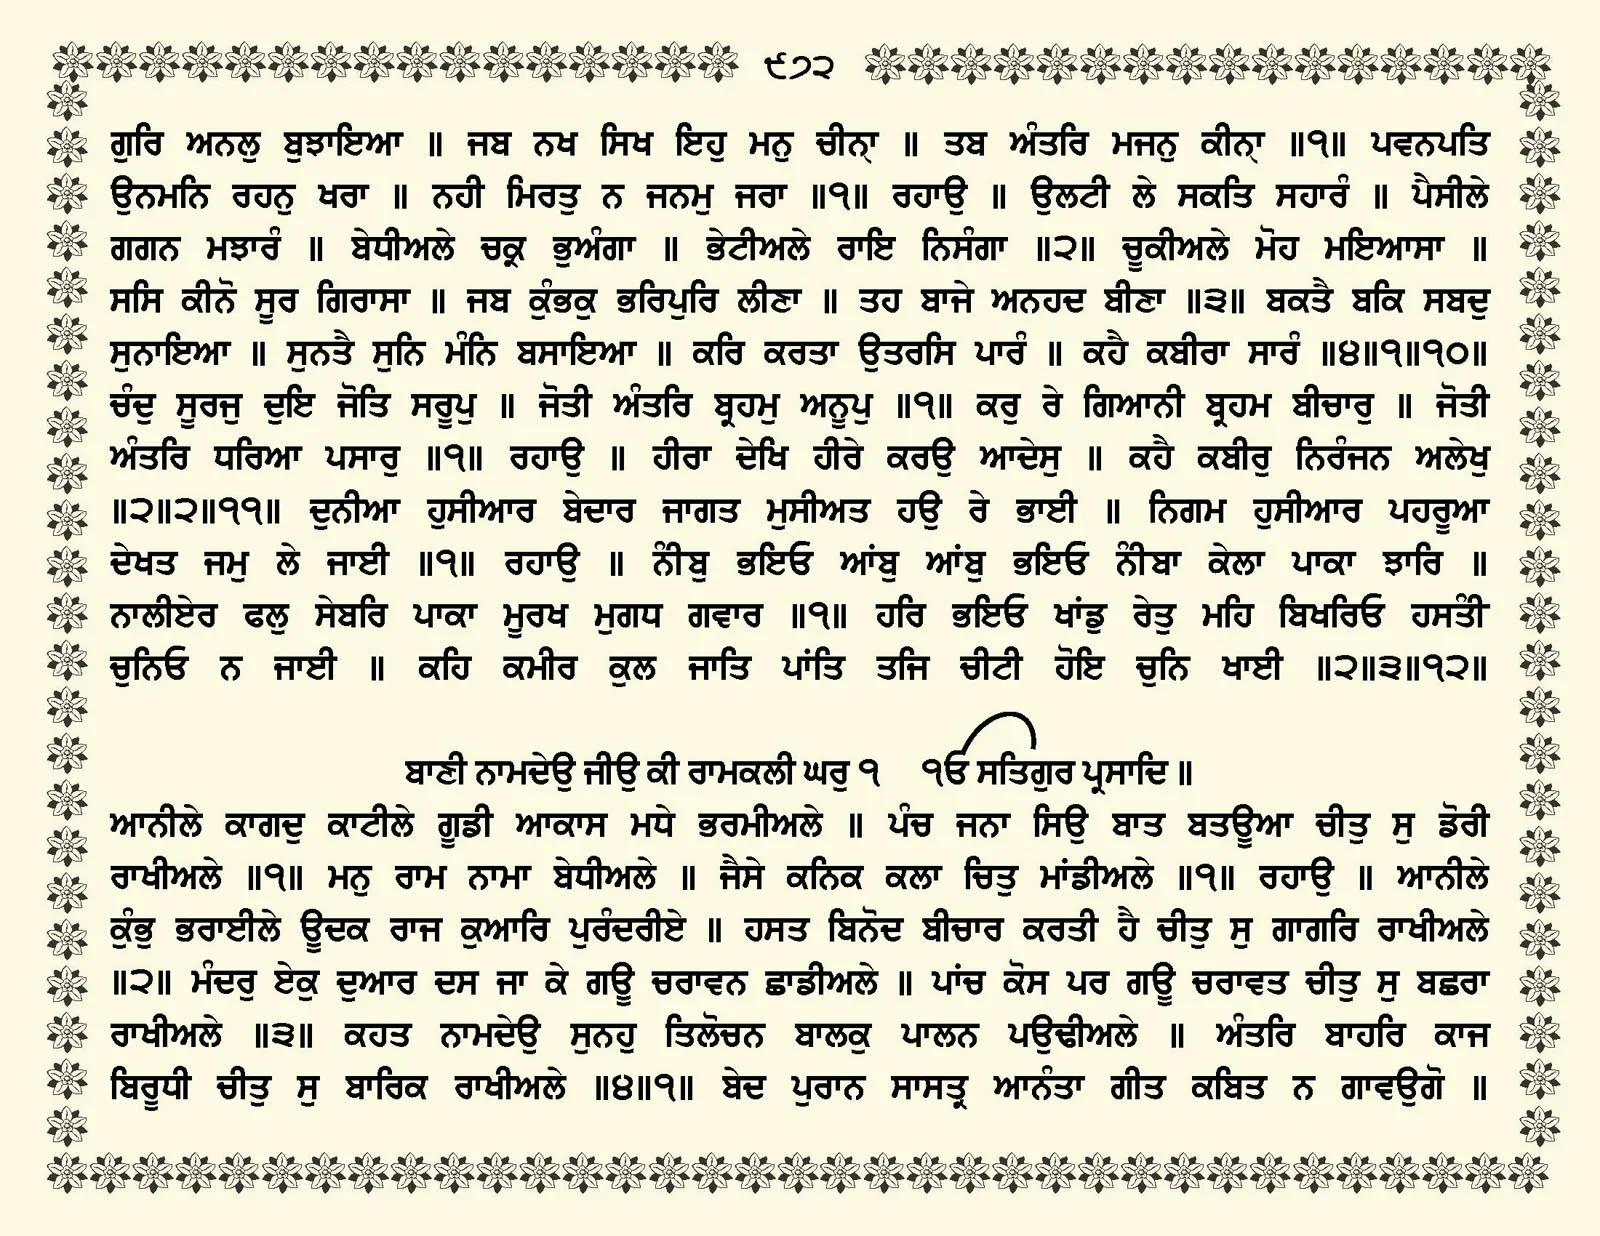 ੯੭੨
ਗੁਰਿ ਅਨਲੁ ਬੁਝਾਇਆ ॥ ਜਬ ਨਖ ਸਿਖ ਇਹੁ ਮਨੁ ਚੀਨਾ੍ ॥ ਤਬ ਅੰਤਰਿ ਮਜਨੁ ਕੀਨਾ੍ ॥੧॥ ਪਵਨਪਤਿ
ਉਨਮਨਿ ਰਹਨੁ ਖਰਾ ॥ ਨਹੀ ਮਿਰਤੁ ਨ ਜਨਮੁ ਜਰਾ ॥੧॥ ਰਹਾਉ ॥ ਉਲਟੀ ਲੇ ਸਕਤਿ ਸਹਾਰੰ ॥ ਪੈਸੀਲੇ
ਗਗਨ ਮਝਾਰੰ ॥ ਬੇਧੀਅਲੇ ਚਕ੍ਰ ਭੁਅੰਗਾ ॥ ਭੇਟੀਅਲੇ ਰਾਇ ਨਿਸੰਗਾ ॥੨॥ ਚੂਕੀਅਲੇ ਮੋਹ ਮਇਆਸਾ ॥
ਸਸਿ ਕੀਨੋ ਸੂਰ ਗਿਰਾਸਾ ॥ ਜਬ ਕੁੰਭਕੁ ਭਰਿਪੁਰਿ ਲੀਣਾ ॥ ਤਹ ਬਾਜੇ ਅਨਹਦ ਬੀਣਾ ॥੩॥ ਬਕਤੈ ਬਕਿ ਸਬਦੁ
ਸੁਨਾਇਆ ॥ ਸੁਨਤੈ ਸੁਨਿ ਮੰਨਿ ਬਸਾਇਆ ॥ ਕਰਿ ਕਰਤਾ ਉਤਰਸਿ ਪਾਰੰ ॥ ਕਹੈ ਕਬੀਰਾ ਸਾਰੰ ॥੪॥੧॥੧੦॥
ਚੰਦੁ ਸੂਰਜੁ ਦੁਇ ਜੋਤਿ ਸਰੂਪੁ ॥ ਜੋਤੀ ਅੰਤਰਿ ਬ੍ਰਹਮੁ ਅਨੂਪੁ ॥੧॥ ਕਰੁ ਰੇ ਗਿਆਨੀ ਬ੍ਰਹਮ ਬੀਚਾਰੁ ॥ ਜੋਤੀ
ਅੰਤਰਿ ਧਰਿਆ ਪਸਾਰੁ ॥੧॥ ਰਹਾਉ ॥ ਹੀਰਾ ਦੇਖਿ ਹੀਰੇ ਕਰਉ ਆਦੇਸੁ ॥ ਕਹੈ ਕਬੀਰੁ ਨਿਰੰਜਨ ਅਲੇਖੁ
॥੨॥੨॥੧੧॥ ਦੁਨੀਆ ਹੁਸੀਆਰ ਬੇਦਾਰ ਜਾਗਤ ਮੁਸੀਅਤ ਹਉ ਰੇ ਭਾਈ ॥ ਨਿਗਮ ਹੁਸੀਆਰ ਪਹਰੂਆ
ਦੇਖਤ ਜਮੁ ਲੇ ਜਾਈ ॥੧॥ ਰਹਾਉ ॥ ਨੰੀਬੁ ਭਇਓ ਆਂਬੁ ਆਂਬੁ ਭਇਓ ਨੰੀਬਾ ਕੇਲਾ ਪਾਕਾ ਝਾਰਿ ॥
ਨਾਲੀਏਰ ਫਲੁ ਸੇਬਰਿ ਪਾਕਾ ਮੂਰਖ ਮੁਗਧ ਗਵਾਰ ॥੧॥ ਹਰਿ ਭਇਓ ਖਾਂਡੁ ਰੇਤੁ ਮਹਿ ਬਿਖਰਿਓ ਹਸਤੰੀ
ਚੁਨਿਓ ਨ ਜਾਈ ॥ ਕਹਿ ਕਮੀਰ ਕੁਲ ਜਾਤਿ ਪਾਂਤਿ ਤਜਿ ਚੀਟੀ ਹੋਇ ਚੁਨਿ ਖਾਈ ॥੨॥੩॥੧੨॥
ਬਾਣੀ ਨਾਮਦੇਉ ਜੀਉ ਕੀ ਰਾਮਕਲੀ ਘਰੁ ੧ ੴ ਸਤਿਗੁਰ ਪ੍ਰਸਾਦਿ ॥
ਆਨੀਲੇ ਕਾਗਦੁ ਕਾਟੀਲੇ ਗੂਡੀ ਆਕਾਸ ਮਧੇ ਭਰਮੀਅਲੇ ॥ ਪੰਚ ਜਨਾ ਸਿਉ ਬਾਤ ਬਤਊਆ ਚੀਤੁ ਸੁ ਡੋਰੀ
ਰਾਖੀਅਲੇ ॥੧॥ ਮਨੁ ਰਾਮ ਨਾਮਾ ਬੇਧੀਅਲੇ ॥ ਜੈਸੇ ਕਨਿਕ ਕਲਾ ਚਿਤੁ ਮਾਂਡੀਅਲੇ ॥੧॥ ਰਹਾਉ ॥ ਆਨੀਲੇ
ਕੁੰਭੁ ਭਰਾਈਲੇ ਊਦਕ ਰਾਜ ਕੁਆਰਿ ਪੁਰੰਦਰੀਏ ॥ ਹਸਤ ਬਿਨੋਦ ਬੀਚਾਰ ਕਰਤੀ ਹੈ ਚੀਤੁ ਸੁ ਗਾਗਰਿ ਰਾਖੀਅਲੇ
॥੨॥ ਮੰਦਰੁ ਏਕੁ ਦੁਆਰ ਦਸ ਜਾ ਕੇ ਗਊ ਚਰਾਵਨ ਛਾਡੀਅਲੇ ॥ ਪਾਂਚ ਕੋਸ ਪਰ ਗਊ ਚਰਾਵਤ ਚੀਤੁ ਸੁ ਬਛਰਾ
ਰਾਖੀਅਲੇ ॥੩॥ ਕਹਤ ਨਾਮਦੇਉ ਸੁਨਹੁ ਤਿਲੋਚਨ ਬਾਲਕੁ ਪਾਲਨ ਪਉਢੀਅਲੇ ॥ ਅੰਤਰਿ ਬਾਹਰਿ ਕਾਜ
ਬਿਰੂਧੀ ਚੀਤੁ ਸੁ ਬਾਰਿਕ ਰਾਖੀਅਲੇ ॥੪॥੧॥ ਬੇਦ ਪੁਰਾਨ ਸਾਸਤ੍ਰ ਆਨੰਤਾ ਗੀਤ ਕਬਿਤ ਨ ਗਾਵਉਗੋ ॥